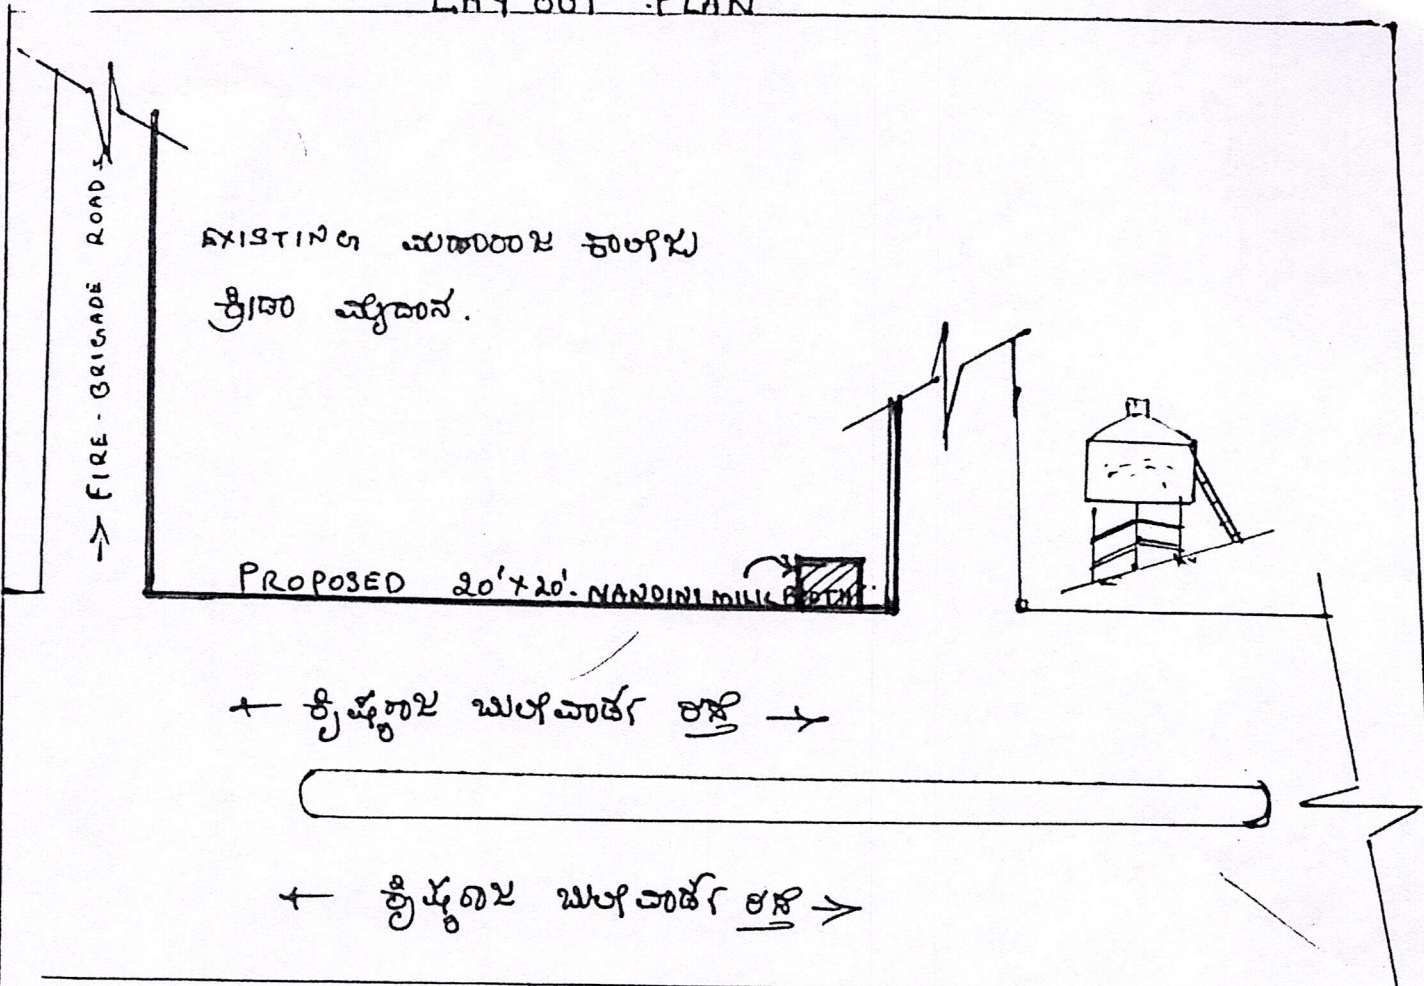 LAY OUT PLAN
→ FIRE-BRIGADE ROAD.
EXISTING ಮಹಾರಾಜ ಕಾಲೇಜು
ಕ್ರೀಡಾ ಮೈದಾನ.
PROPOSED 20'X20'. NANDINI MILK BOOTH.
← ಕ್ರಿಷ್ಣರಾಜ ಬುಲೇವಾರ್ಡ್ ರಸ್ತೆ →
← ಕ್ರಿಷ್ಣರಾಜ ಬುಲೇವಾರ್ಡ್ ರಸ್ತೆ →